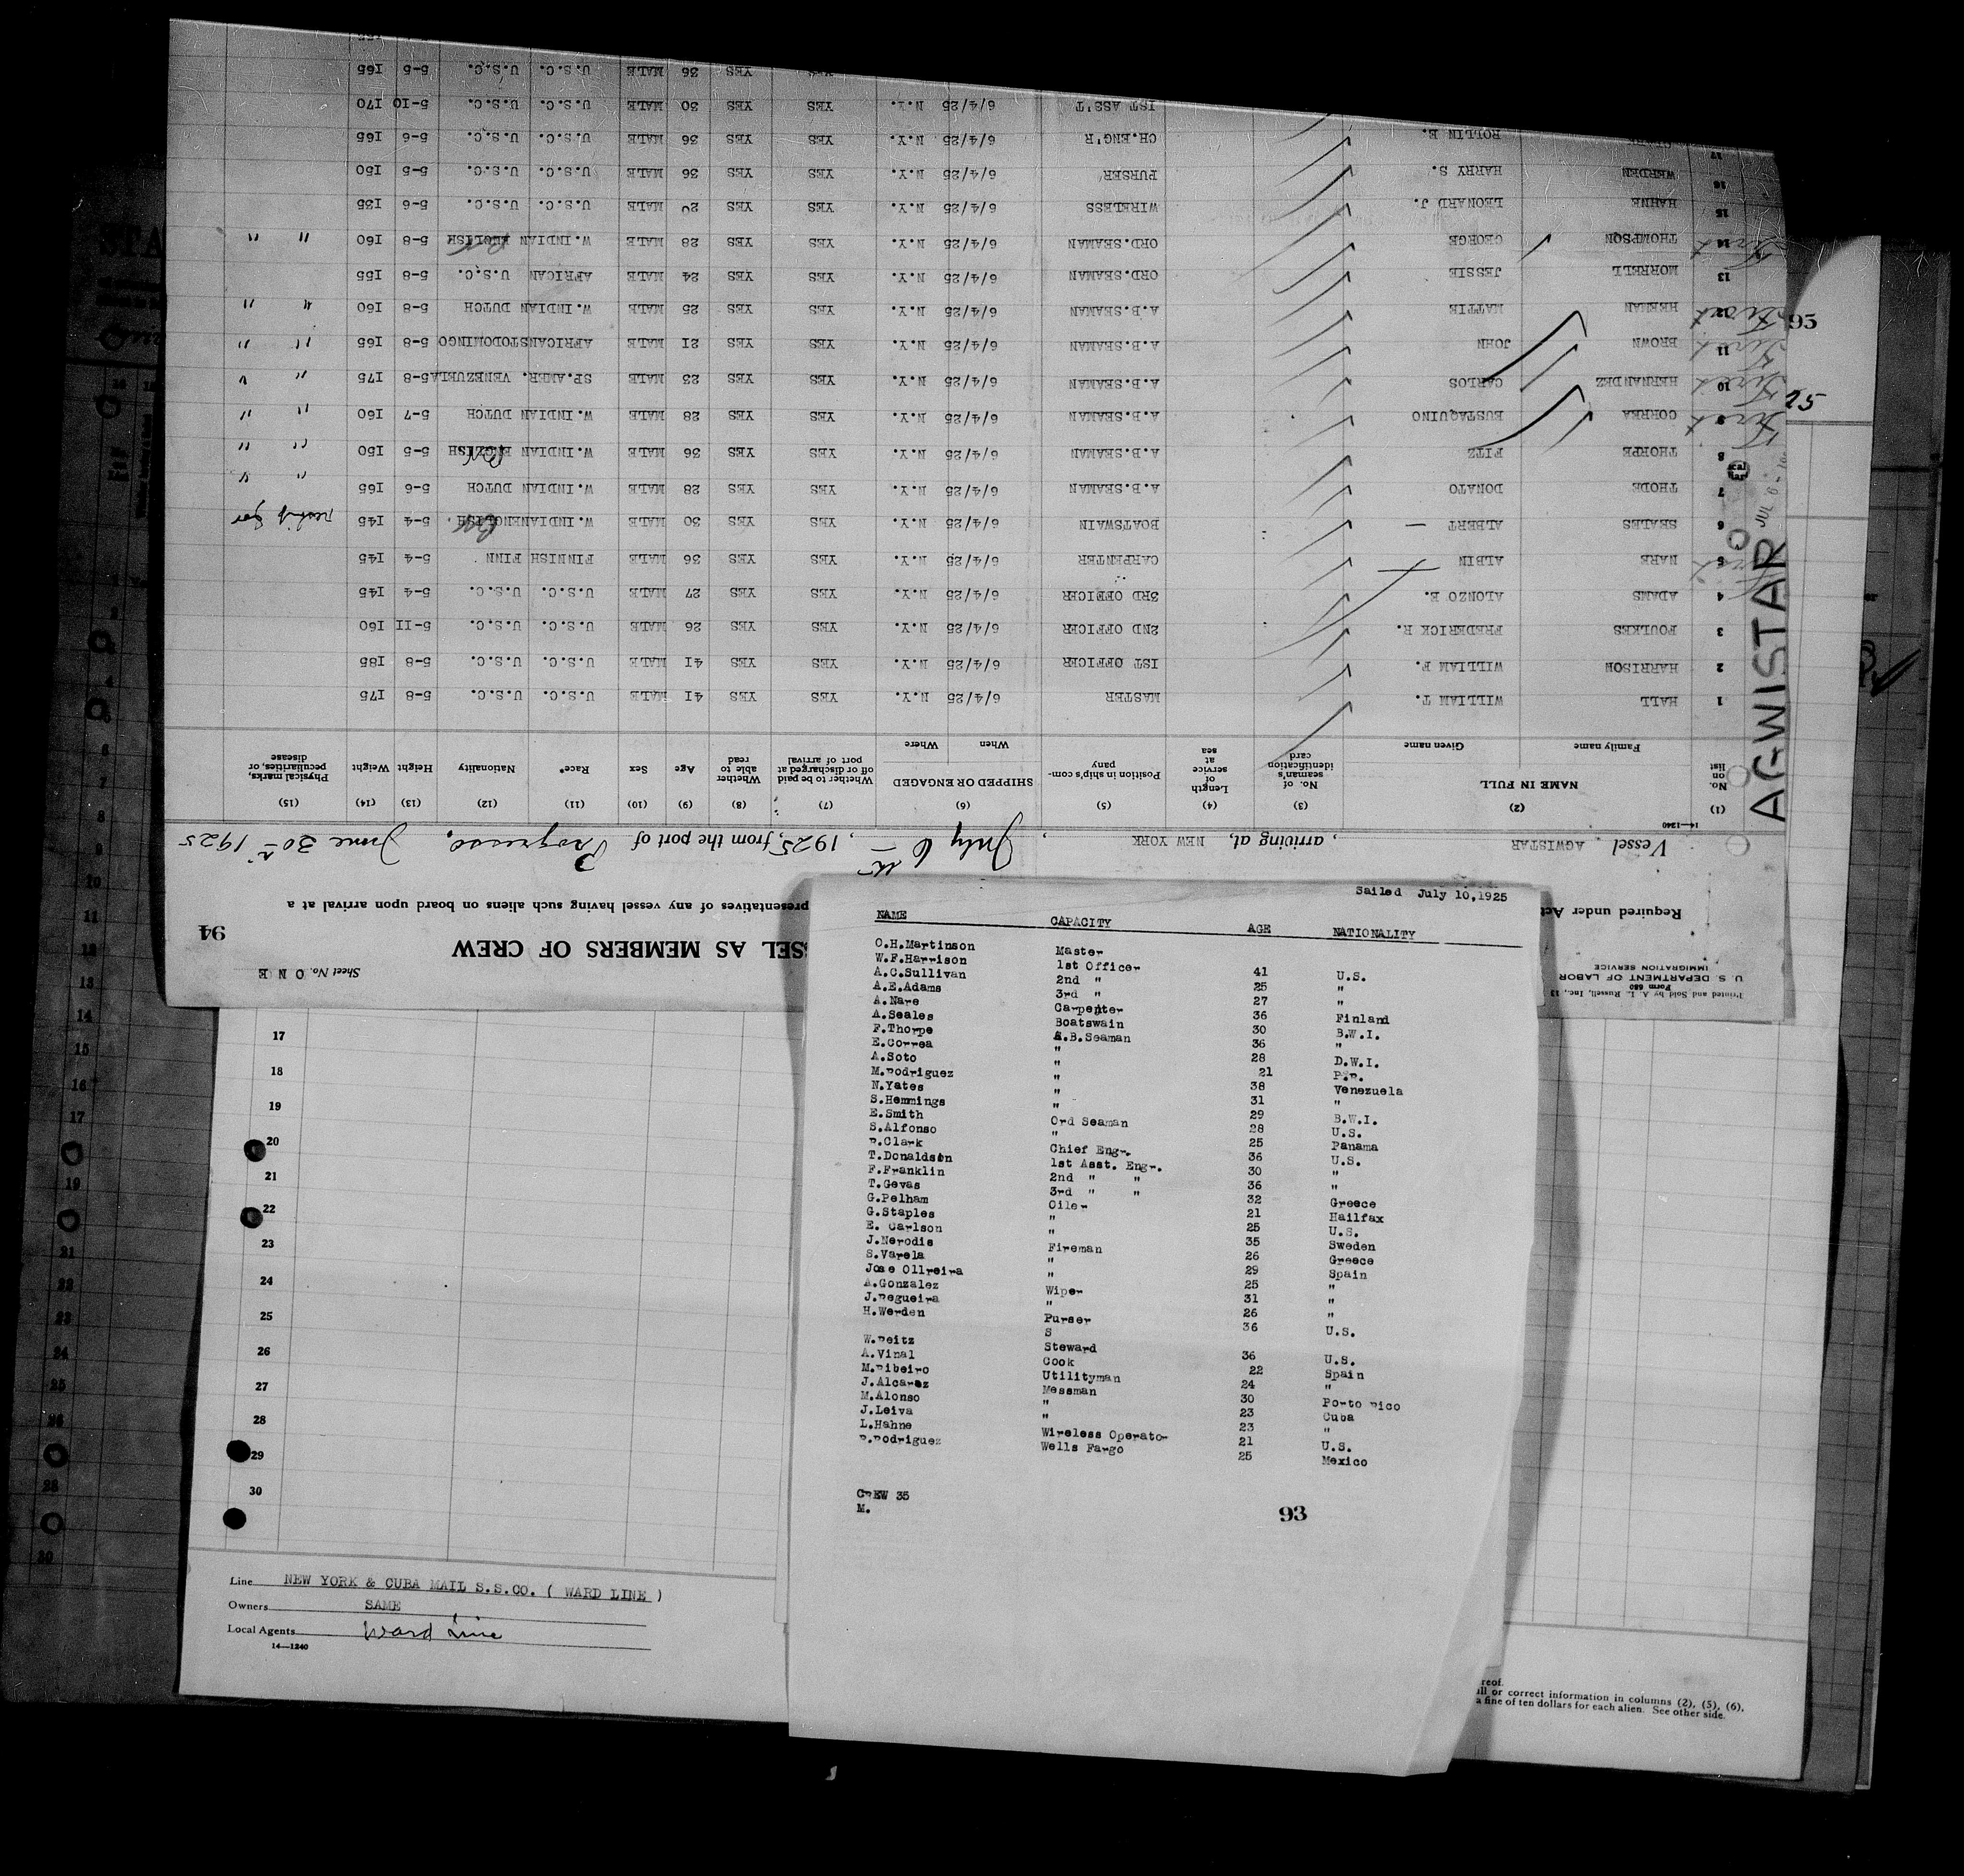 Printed and Sold by A. L. Russell, Inc., 13
Form 680
U. S. DEPARTMENT OF LABOR
IMMIGRATION SERVICE
Sheet No. ONE
SSEL AS MEMBERS OF CREW
94
Required under Act
presentatives of any vessel having such aliens on board upon arrival at a
Vessel AGWISTAR, arriving at, NEW YORK, July 6th, 1925, from the port of Progreso, June 30th 1925
14—1240
(1) (2) (3) (4) (5) (6) (7) (8) (9) (10) (11) (12) (13) (14) (15)
No. on list NAME IN FULL Family name Given name No. of seaman's identification card Length of service at sea Position in ship's company SHIPPED OR ENGAGED When Where Whether to be paid off or discharged at port of arrival Whether able to read Age Sex Race* Nationality Height Weight Physical marks, peculiarities, or disease
1 HALL WILLIAM T. MASTER 6/4/25 N.Y. YES YES 41 MALE U.S.C. U.S.C. 5-8 175
2 HARRISON WILLIAM F. IST OFFICER 6/4/25 N.Y. YES YES 41 MALE U.S.C. U.S.C. 5-8 185
3 FOULKES FREDERICK R. 2ND OFFICER 6/4/25 N.Y. YES YES 26 MALE U.S.C. U.S.C. 5-II 160
4 ADAMS ALONZO E. 3RD OFFICER 6/4/25 N.Y. YES YES 27 MALE U.S.C. U.S.C. 5-4 145
5 NARE ALBIN CARPENTER 6/4/25 N.Y. YES YES 36 MALE FINNISH FINN 5-4 145
6 SEALES ALBERT BOATSWAIN 6/4/25 N.Y. YES YES 30 MALE W.INDIAN ENGLISH 5-4 145
7 THODE DONATO A.B.SEAMAN 6/4/25 N.Y. YES YES 28 MALE W.INDIAN DUTCH 5-6 165 " "
8 THORPE FITZ A.B.SEAMAN 6/4/25 N.Y. YES YES 36 MALE W.INDIAN ENGLISH 5-5 150 " "
9 CORREA EUSTAQUINO A.B.SEAMAN 6/4/25 N.Y. YES YES 28 MALE W.INDIAN DUTCH 5-7 160 " "
10 HERNANDEZ CARLOS A.B.SEAMAN 6/4/25 N.Y. YES YES 23 MALE SP.AMER. VENEZUELA 5-8 175 " "
11 BROWN JOHN A.B.SEAMAN 6/4/25 N.Y. YES YES 21 MALE AFRICAN STODOMINGO 5-8 165 " "
12 HERMAN MATTIE A.B.SEAMAN 6/4/25 N.Y. YES YES 25 MALE W.INDIAN DUTCH 5-8 160 " "
13 MORRELL JESSIE ORD.SEAMAN 6/4/25 N.Y. YES YES 24 MALE AFRICAN U.S.C. 5-8 155
14 THOMPSON GEORGE ORD.SEAMAN 6/4/25 N.Y. YES YES 28 MALE W.INDIAN ENGLISH 5-8 160 " "
15 HAHNE LEONARD J. WIRELESS 6/4/25 N.Y. YES YES 20 MALE U.S.C. U.S.C. 5-6 135
16 WERDEN HARRY S. PURSER 6/4/25 N.Y. YES YES 36 MALE U.S.C. U.S.C. 5-5 150
17 ROLLIN E. CH.ENG'R 6/4/25 N.Y. YES YES 36 MALE U.S.C. U.S.C. 5-6 165
IST ASS'T 6/4/25 N.Y. YES YES 30 MALE U.S.C. U.S.C. 5-IO 170
YES YES 36 MALE U.S.C. U.S.C. 5-5 165
AGWISTAR
95
25
Sailed July 10,1925
NAME CAPACITY AGE NATIONALITY
O.H.Martinson Master
W.F.Harrison 1st Officer 41 U.S.
A.C.Sullivan 2nd " 25 "
A.E.Adams 3rd " 27 "
A.Nare Carpenter 36 Finland
A.Seales Boatswain 30 B.W.I.
F.Thorpe A.B.Seaman 36 "
E.Correa " 28 D.W.I.
A.Soto " 21 P.R.
M.Rodriguez " 38 Venezuela
N.Yates " 31 "
S.Hemmings " 29 B.W.I.
E.Smith Ord Seaman 28 U.S.
S.Alfonso " 25 Panama
R.Clark Chief Engr. 36 U.S.
T.Donaldson 1st Asst. Engr. 30 "
F.Franklin 2nd " " 36 "
T.Gevas 3rd " " 32 Greece
G.Pelham Oiler 21 Hailfax
G.Staples " 25 U.S.
E. Carlson " 35 Sweden
J.Nerodis Fireman 26 Greece
S.Varela " 29 Spain
Jose Ollreira " 25 "
A.Gonzalez Wiper 31 "
J.Regueira " 26 "
H.Werden Purser 36 U.S.
S
W.Reitz Steward 36 U.S.
A.Vinal Cook 22 Spain
M.Ribeiro Utilityman 24 "
J.Alcarez Messman 30 Porto Rico
M.Alonso " 23 Cuba
J.Leiva " 23 "
L.Hahne Wireless Operator 21 U.S.
R.Rodriguez Wells Fargo 25 Mexico
CREW 35
M.
93
17
18
19
20
21
22
23
24
25
26
27
28
29
30
Line NEW YORK & CUBA MAIL S.S.CO. ( WARD LINE )
Owners SAME
Local Agents Ward Line
14—1240
reof.
ill or correct information in columns (2), (5), (6),
a fine of ten dollars for each alien. See other side.